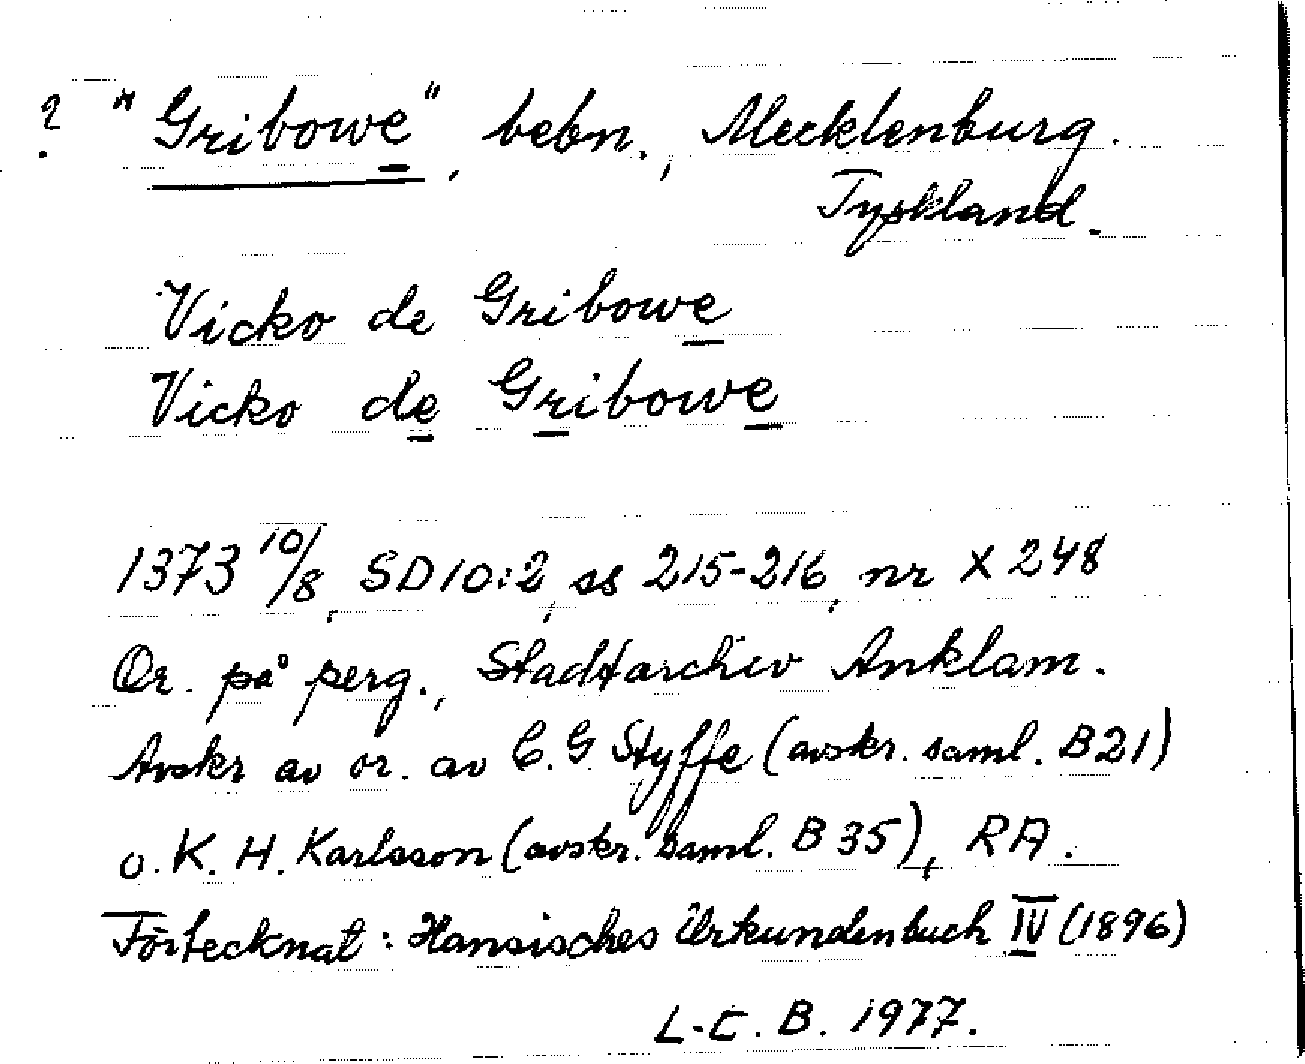 ? "Gribowe", bebn., Mecklenburg.
Tyskland.
Vicko de Gribowe
Vicko de Gribowe
1373 10/8, SD 10:2, ss 215-216, nr X 248
Or. på perg., Stadtarchiv Anklam.
Avskr av or. av C. G. Styffe (avskr. saml. B 21)
o. K. H. Karlsson (avskr. saml. B 35), RA.
Förtecknat: Hansisches Urkundenbuch IV (1896)
L-C. B. 1977.